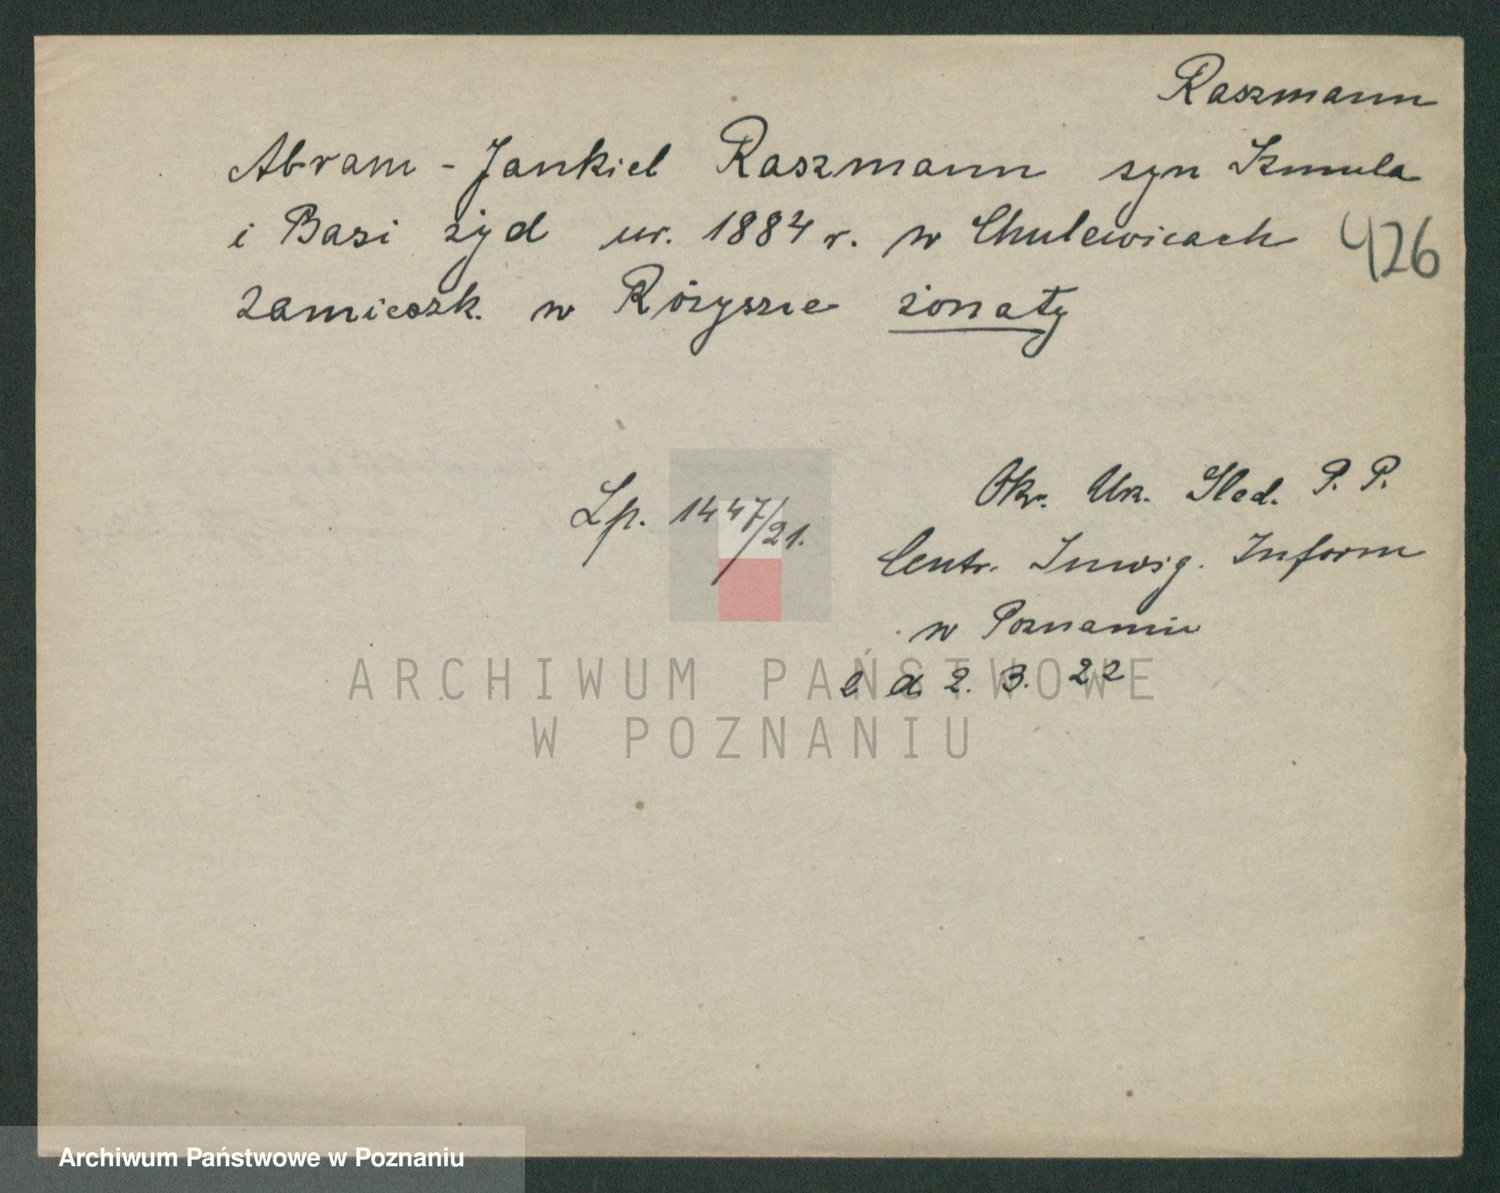 Raszmann
Abram - Jankiel Raszmann syn Szmula
i Basi żyd ur. 1884 r. w Chulewicach
426
zamieszk. w Rożyszcze żonaty
Lp. 1447/21.
Okr. Urz. Śled. P. P.
Centr. Inwig. Inform
w Poznaniu
l d 2. 3. 22
ARCHIWUM PAŃSTWOWE
W POZNANIU
Archiwum Państwowe w Poznaniu